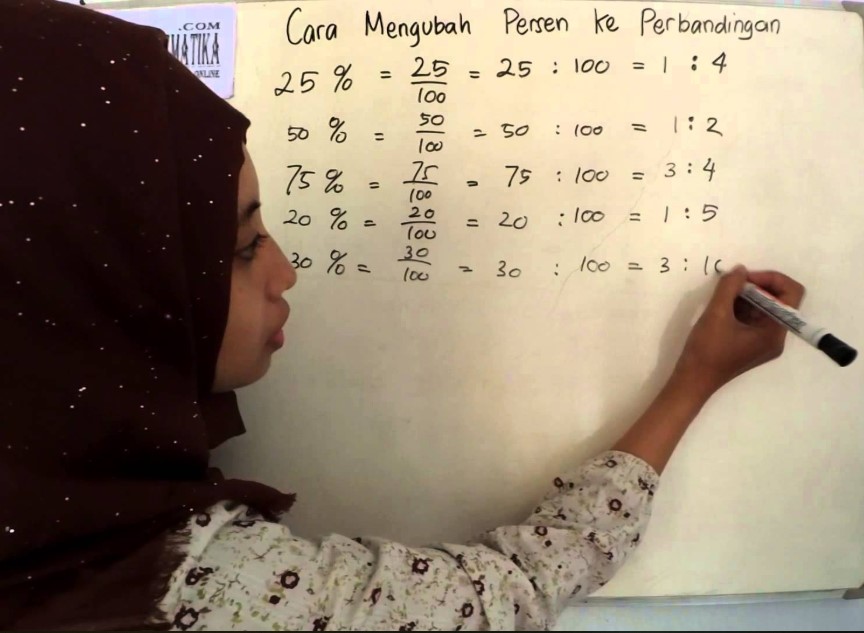 .COM
ONLINE
Cara Mengubah Persen ke Perbandingan
25 % = 25/100 = 25 : 100 = 1 : 4
50 % = 50/100 = 50 : 100 = 1 : 2
75 % = 75/100 = 75 : 100 = 3 : 4
20 % = 20/100 = 20 : 100 = 1 : 5
30 % = 30/100 = 30 : 100 = 3 : 10